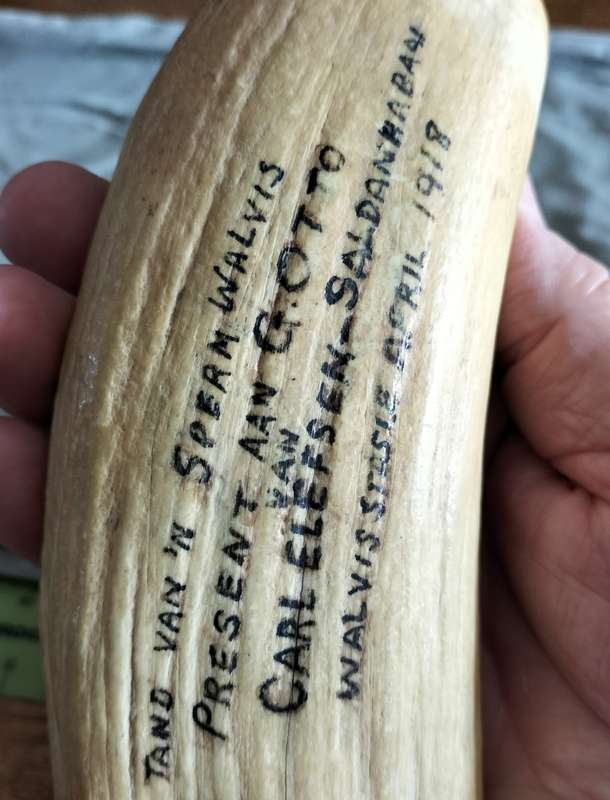 TAND VAN 'N SPERM WALVIS
PRESENT AAN G. OTTO
VAN
CARL ELEFSEN – SALDANHABAAI
WALVISSTASIE APRIL 1918